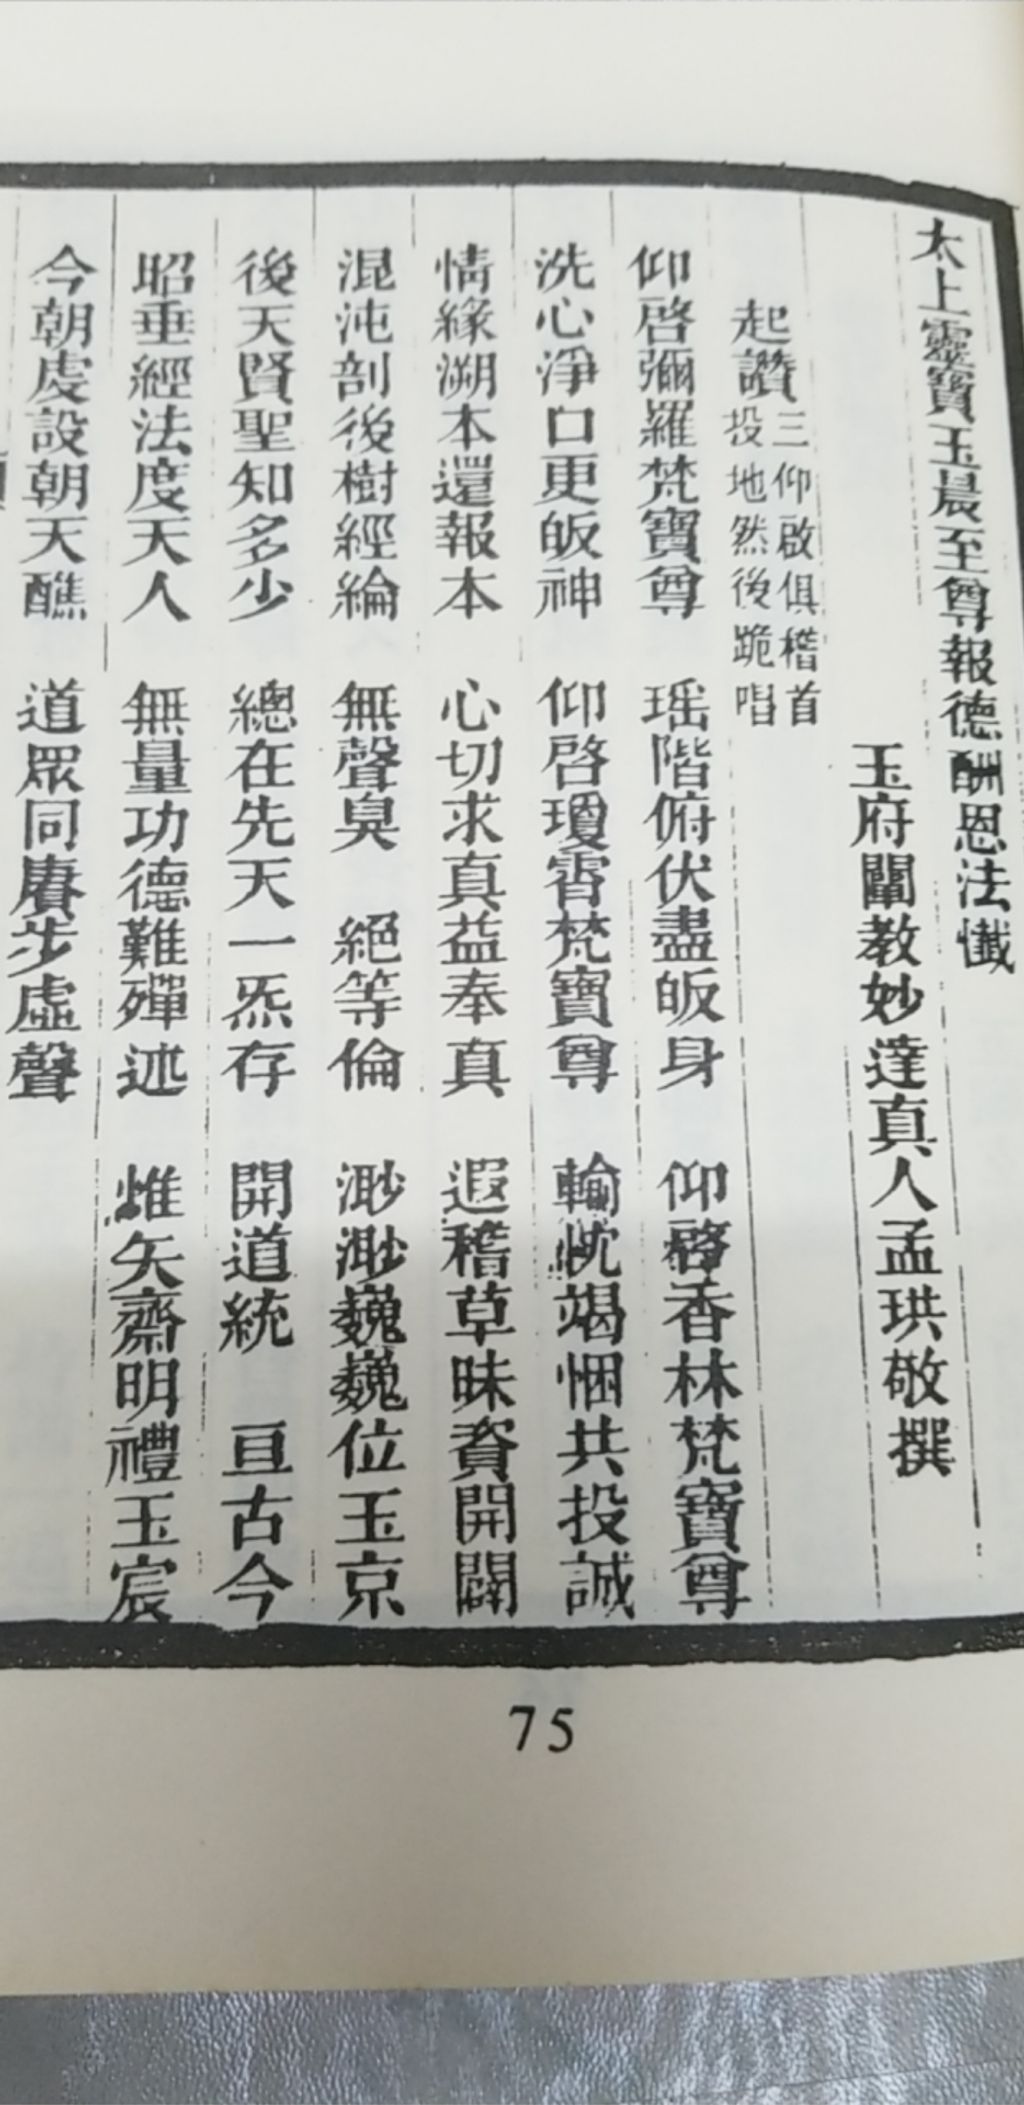 太上靈寶玉晨至尊報德酬恩法懺
玉府闡教妙達真人孟珙敬撰
起讚三仰啟俱稽首投地然後跪唱
仰啓彌羅梵寶尊　瑶階俯伏盡皈身　仰啓香林梵寶尊
洗心淨口更皈神　仰啓瓊霄梵寶尊　輸忱竭悃共投誠
情緣溯本還報本　心切求真益奉真　遐稽草昧資開闢
混沌剖後樹經綸　無聲臭　絕等倫　渺渺巍巍位玉京
後天賢聖知多少　總在先天一炁存　開道統　亘古今
昭垂經法度天人　無量功德難殫述　惟矢齋明禮玉宸
今朝虔設朝天醮　道眾同賡步虛聲
75